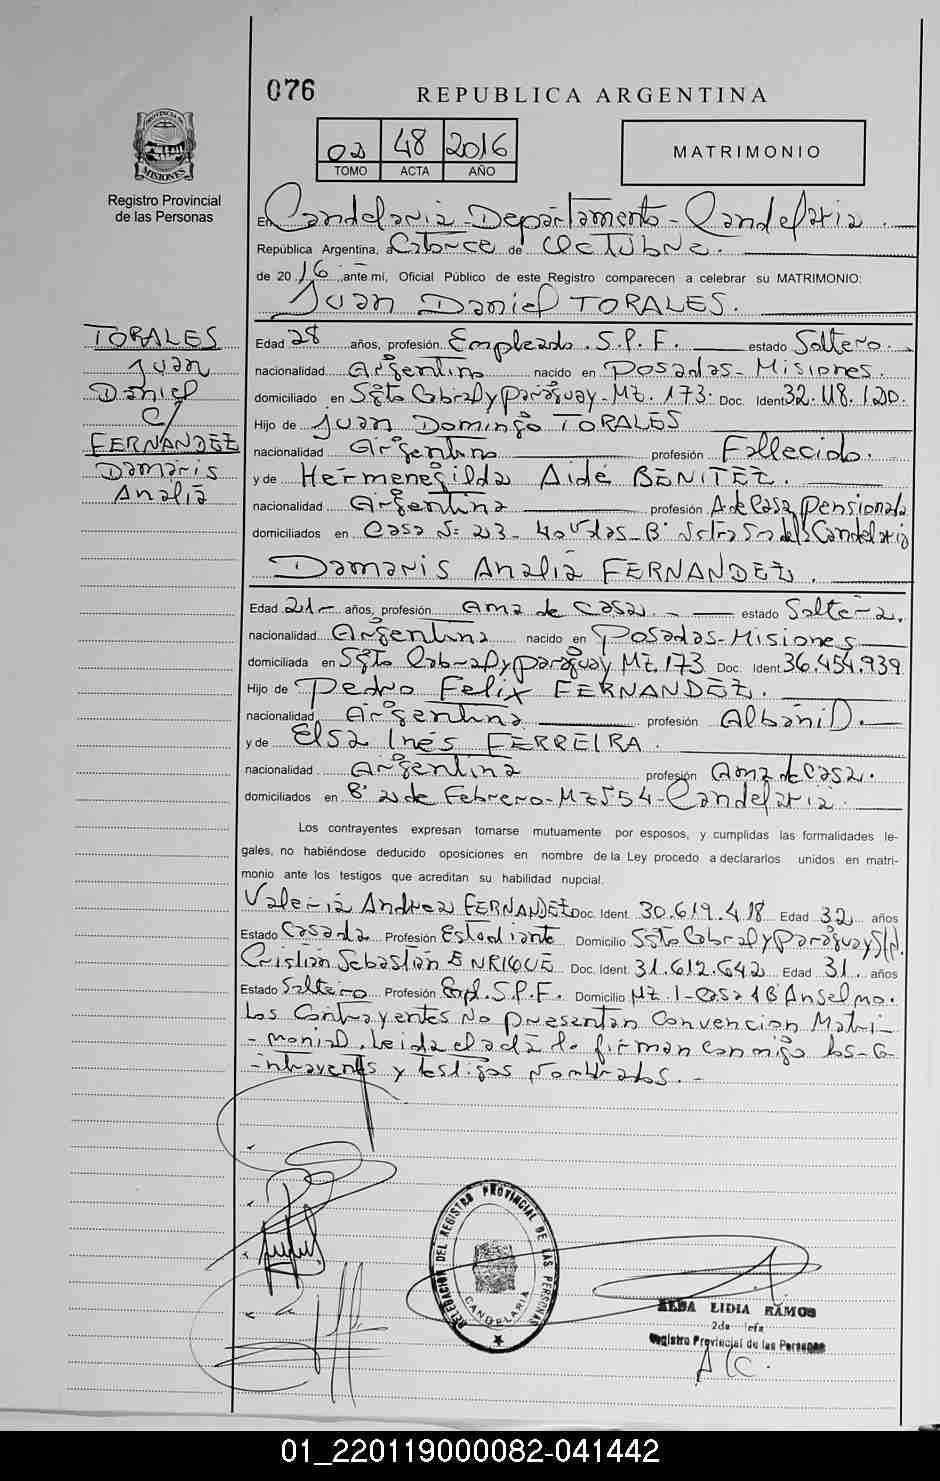 076
REPUBLICA ARGENTINA
PROVINCIA DE MISIONES
Registro Provincial
de las Personas
02 48 2016
TOMO ACTA AÑO
MATRIMONIO
En Candelaria - Departamento - Candelaria.
República Argentina, a Catorce de Octubre.
de 2016 ante mí, Oficial Público de este Registro comparecen a celebrar su MATRIMONIO:
Juan Daniel TORALES.
TORALES
Juan
Daniel
C/
FERNANDEZ
Damaris
Analía
Edad 28 años, profesión Empleado. S.P.F. estado Soltero.
nacionalidad Argentino nacido en Posadas - Misiones.
domiciliado en Sgto Cabral y Paraguay - Mz. 173. Doc. Ident 32.118.120.
Hijo de Juan Domingo TORALES
nacionalidad Argentino profesión Fallecido.
y de Hermenegilda Aidé BENITEZ.
nacionalidad Argentina profesión A de Casa pensionada
domiciliados en Casa Nº 23 - 40 Vdas - Bº Candelaria
Damaris Analia FERNANDEZ.
Edad 21 - años, profesión Ama de Casa. - estado Soltera.
nacionalidad Argentina nacido en Posadas - Misiones
domiciliada en Sgto Cabral y Paraguay Mz. 173 Doc. Ident 36.454.939
Hijo de Pedro Felix FERNANDEZ.
nacionalidad Argentina profesión Albañil.
y de Elsa Inés FERREIRA.
nacionalidad Argentina profesión Ama de Casa.
domiciliados en Bº 2 de Febrero - Mz 554 - Candelaria.
Los contrayentes expresan tomarse mutuamente por esposos, y cumplidas las formalidades le-
gales, no habiéndose deducido oposiciones en nombre de la Ley procedo a declararlos unidos en matri-
monio ante los testigos que acreditan su habilidad nupcial.
Valeria Andrea FERNANDEZ Doc. Ident. 30.619.418 Edad 32 años
Estado Casada Profesión Estudiante Domicilio Sgto Cabral y Paraguay S/N.
Cristian Sebastián ENRIQUE Doc. Ident. 31.612.642 Edad 31. años
Estado Soltero Profesión Empl. S.P.F. Domicilio Mz. 1 - Casa 1 Bº Anselmo.
Los Contrayentes No presentan Convencion Matri-
- monial. Leida el acta la firman conmigo los Co-
- ntrayentes y testigos nombrados. -
DELEGACION DEL REGISTRO PROVINCIAL DE LAS PERSONAS
CANDELARIA
ALBA LIDIA RAMOS
2da Jefa
Registro Provincial de las Personas
A/C.
01_220119000082-041442